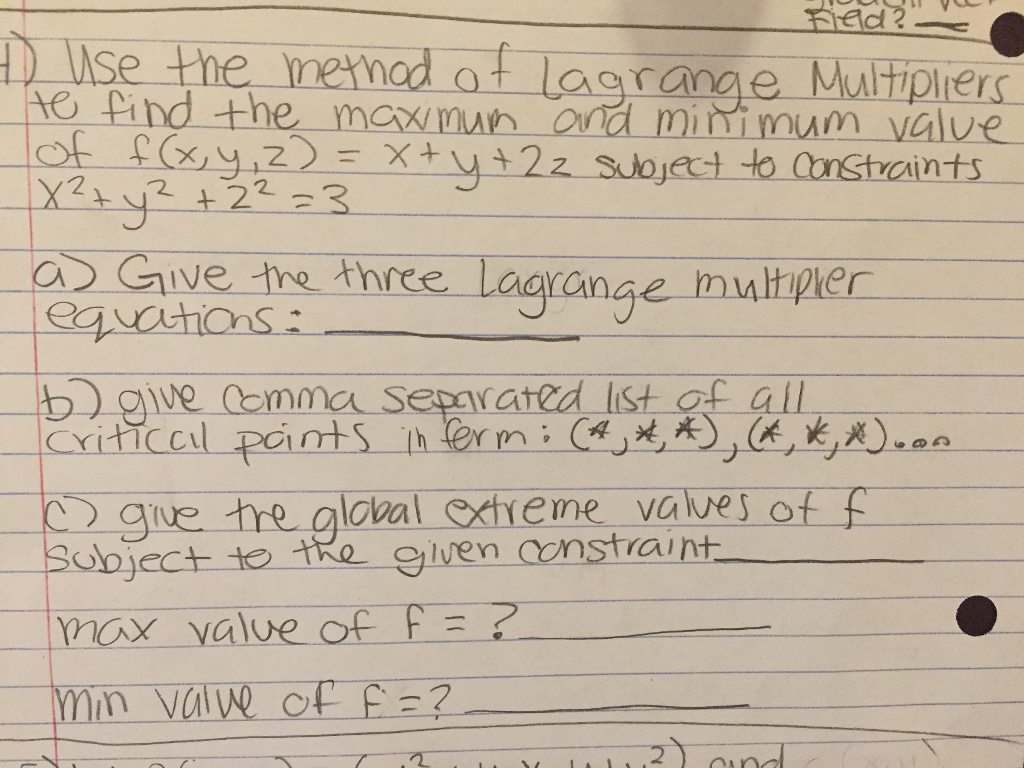 Field?
1) Use the method of Lagrange Multipliers
to find the maxmum and minimum value
of f(x,y,z) = x+y+2z subject to constraints
x²+y²+z²=3
a) Give the three Lagrange multiplier
equations:
b) give comma separated list of all
critical points in form: (*,*,*),(*,*,*)....
c) give the global extreme values of f
subject to the given constraint
max value of f = ?
min value of f = ?
and